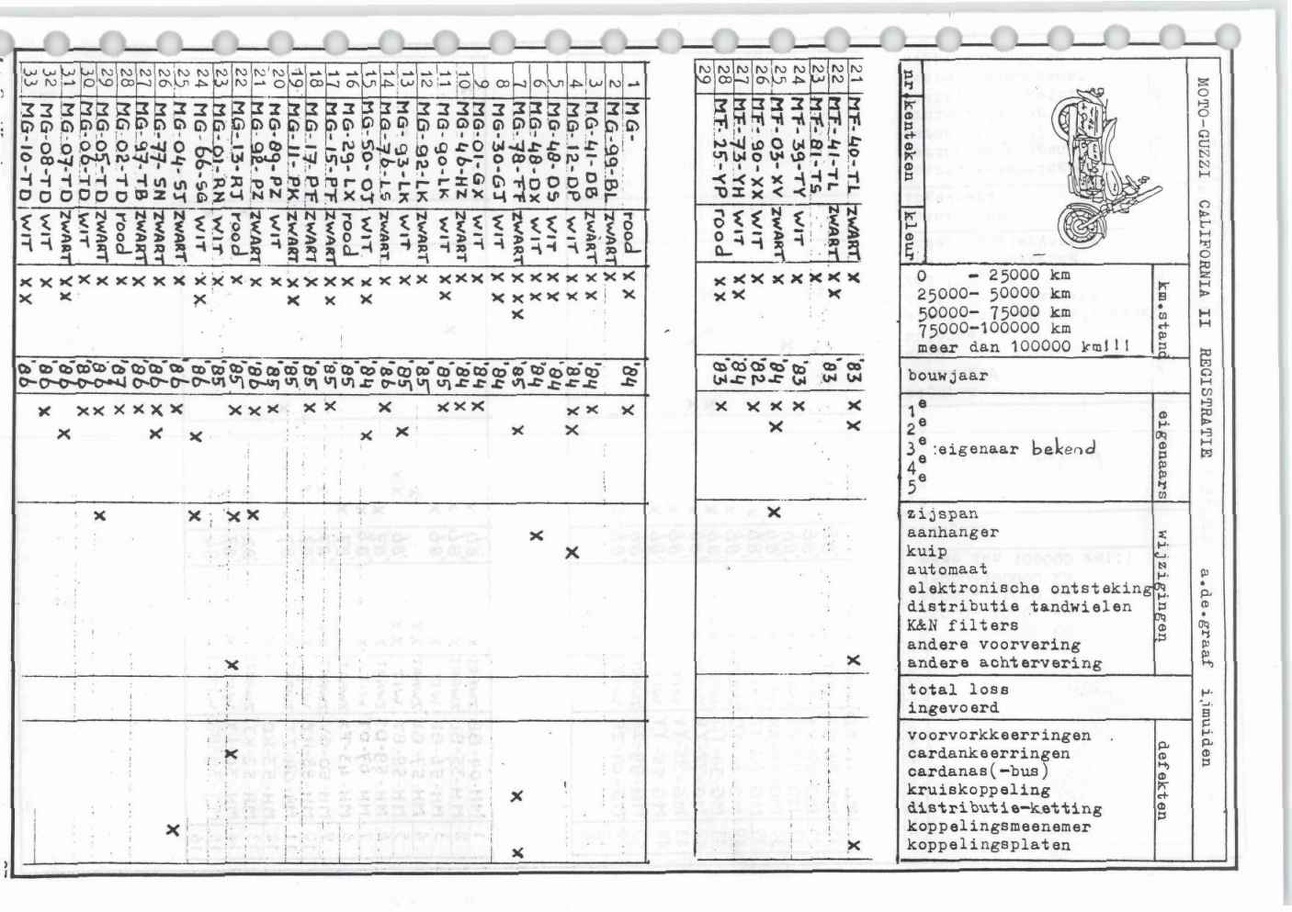 MOTO-GUZZI CALIFORNIA II REGISTRATIE a.de.graaf ijmuiden
km.stand
eigenaars
wijzigingen
defekten
nr.
kenteken
kleur
0 - 25000 km
25000- 50000 km
50000- 75000 km
75000-100000 km
meer dan 100000 km!!!
bouwjaar
1e
2e
3e :eigenaar bekend
4e
5e
zijspan
aanhanger
kuip
automaat
elektronische ontsteking
distributie tandwielen
K&N filters
andere voorvering
andere achtervering
total loss
ingevoerd
voorvorkkeerringen
cardankeerringen
cardanas(-bus)
kruiskoppeling
distributie-ketting
koppelingsmeenemer
koppelingsplaten
21 MF-40-TL ZWART x '83 x x x x
22 MF-41-TL ZWART x x '83
23 MF-81-TS x
24 MF-39-TY WIT x '83 x
25 MF-03-XV ZWART x '84 x x x
26 MF-90-XX WIT x '82 x
27 MF-73-YH WIT x x '84
28 MF-25-YP rood x x '83 x
29
1 MG- rood x x '84 x
2 MG-99-BL ZWART x
3 MG-41-DB ZWART x x '84 x
4 MG-12-DP WIT x x '84 x x x
5 MG-48-DS WIT x x '84
6 MG-48-DX WIT x x '84 x
7 MG-78-FF ZWART x x x '85 x x x
8 MG-30-GJ WIT x x
9 MG-01-GX WIT x '84 x
10 MG-46-HZ ZWART x '84 x
11 MG-90-LK WIT x x '85 x
12 MG-92-LK ZWART x '85
13 MG-93-LK WIT x '85 x
14 MG-76-LS ZWART x '84 x
15 MG-50-OJ WIT x x '84 x
16 MG-29-LX rood x '85
17 MG-15-PF ZWART x x '85 x
18 MG-17-PF ZWART x '85 x
19 MG-11-PK ZWART x x '85
20 MG-89-PZ WIT x '85 x
21 MG-92-PZ ZWART x '86 x x
22 MG-13-RJ rood x '85 x x x x
23 MG-01-RN WIT x '85
24 MG-66-SG WIT x x '86 x x
25 MG-04-SJ ZWART x '86 x x
26 MG-77-SN ZWART x '86 x x
27 MG-97-TB ZWART x '86 x
28 MG-02-TD rood x '87 x
29 MG-05-TD ZWART x '86 x x
30 MG-03-TD WIT x '86 x
31 MG-07-TD ZWART x x '86 x
32 MG-08-TD WIT x '86 x
33 MG-10-TD WIT x x '86